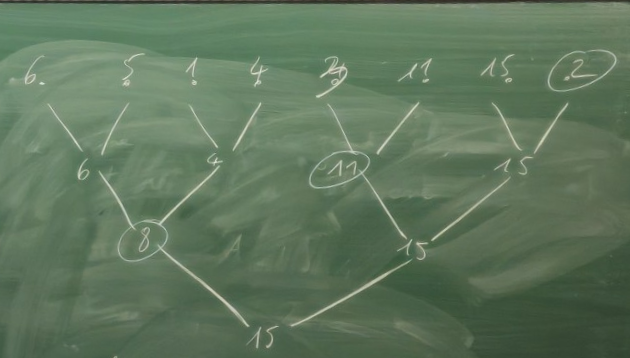 6. 5 1 4 11 15 2
6 4 11 15
8 15
15